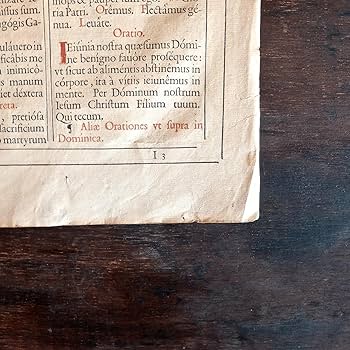 agógis Ga-
uláuero in
ficábis me
inimicó-
manum
déxtera
reta.
, pretióſa
acrificium
martyrum
ria Patri. Orémus. Flectámus gé-
nua. Leuáte.
Oratio.
IEiúnia noſtra quæſumus Dómi-
ne benigno fauóre proſéquere:
vt ſicut ab aliméntis abſtinémus in
córpore, ita à vitiis ieiunémus in
mente. Per Dóminum noſtrum
Ieſum Chriſtum Filium tuum.
Qui tecum.
¶ Aliæ Orationes vt ſupra in
Dominica.
I 3